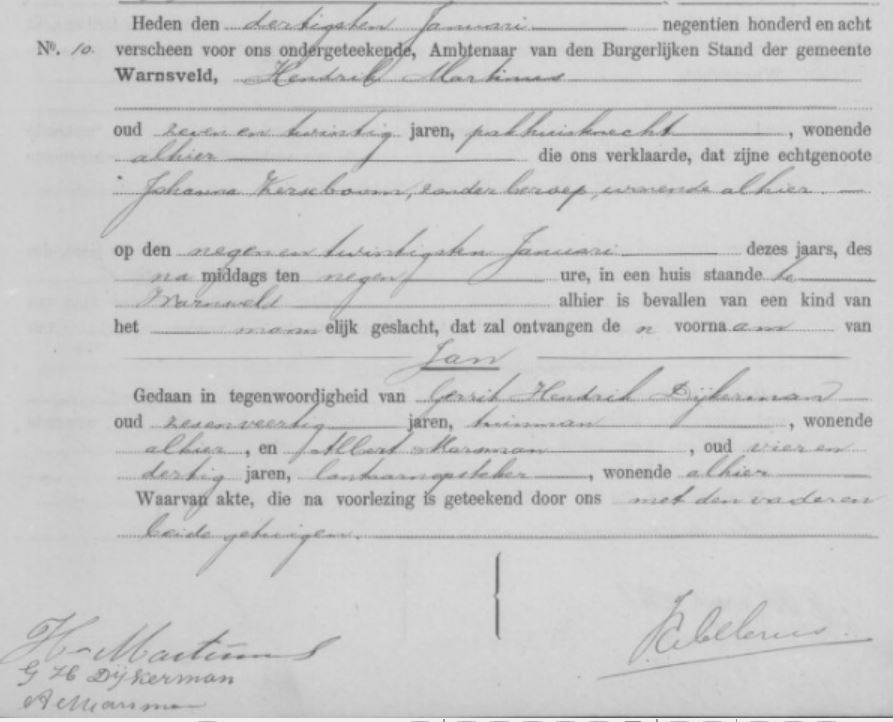 Heden den dertigsten Januari negentien honderd en acht
No. 10. verscheen voor ons ondergeteekende, Ambtenaar van den Burgerlijken Stand der gemeente
Warnsveld, Hendrik Martinus
oud zeven en twintig jaren, pakhuisknecht, wonende
alhier die ons verklaarde, dat zijne echtgenoote
Johanna Kerseboom, zonder beroep, wonende alhier.
op den negen en twintigsten Januari dezes jaars, des
na middags ten negen ure, in een huis staande te
Warnsveld alhier is bevallen van een kind van
het mannelijk geslacht, dat zal ontvangen de n voornaam van
Jan
Gedaan in tegenwoordigheid van Gerrit Hendrik Dijkerman
oud zesenveertig jaren, tuinman, wonende
alhier, en Albert Marsman, oud vier en
dertig jaren, lantaarnopsteker, wonende alhier
Waarvan akte, die na voorlezing is geteekend door ons met den vader en
beide getuigen.
H. Martinus
G H Dijkerman
A Marsman